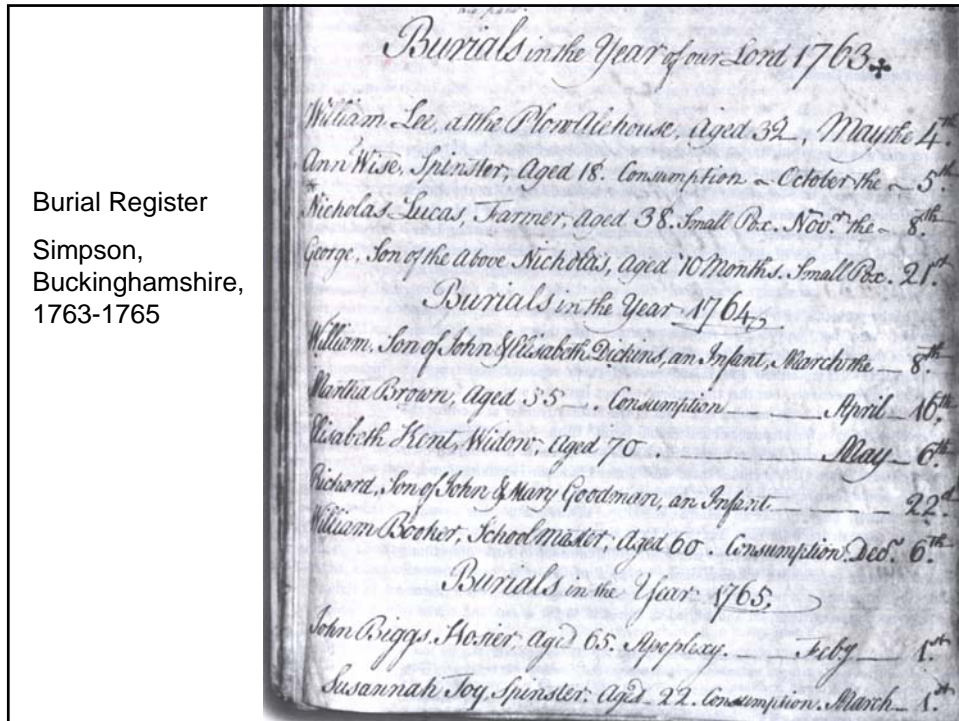 Burial Register
Simpson,
Buckinghamshire,
1763-1765
Burials in the Year of our Lord 1763
William Lee, at the Plow Alehouse, Aged 32, May the 4th.
Ann Wise, Spinster, Aged 18. Consumption October the 5th.
Nicholas Lucas, Farmer, Aged 38. Small Pox. Novr. the 8th.
George, Son of the above Nicholas, Aged 10 Months. Small Pox. 21st.
Burials in the Year 1764
William, Son of John & Elisabeth Dickins, an Infant, March the 8th.
Martha Brown, Aged 35. Consumption April 16th.
Elisabeth Kent, Widow, Aged 70. May 6th.
Richard, Son of John & Mary Goodman, an Infant 22d.
William Booker, Schoolmaster, Aged 60. Consumption. Decr. 6th.
Burials in the Year 1765.
John Biggs, Hosier, aged 65. Apoplexy. Feby 1st.
Susannah Joy, Spinster, Aged 22. Consumption. March 1st.